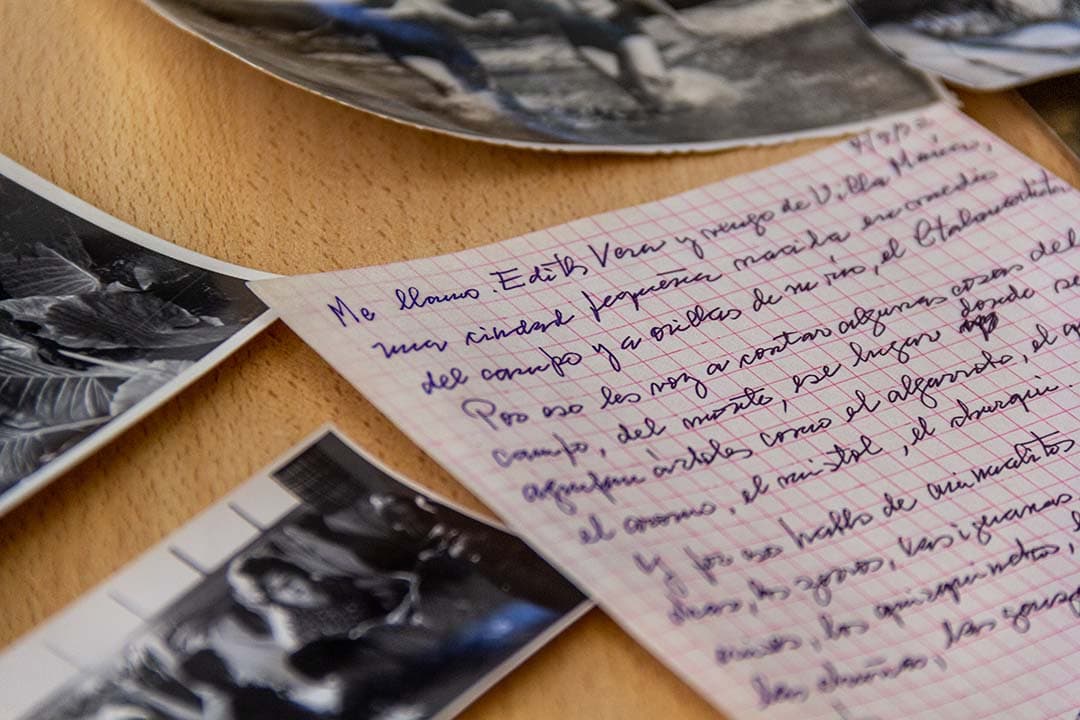 Me llamo Edith Vera y vengo de Villa María,
una ciudad pequeña nacida en medio
del campo y a orillas de un río, el Ctalamochita.
Por eso les voy a contar algunas cosas del
campo, del monte, ese lugar donde se
agrupan árboles como el algarrobo, el
el aromo, el mistol, el churqui.
Y por eso hablo de animalitos
los zorros, las iguanas
los quirquinchos,
las chuñas, las